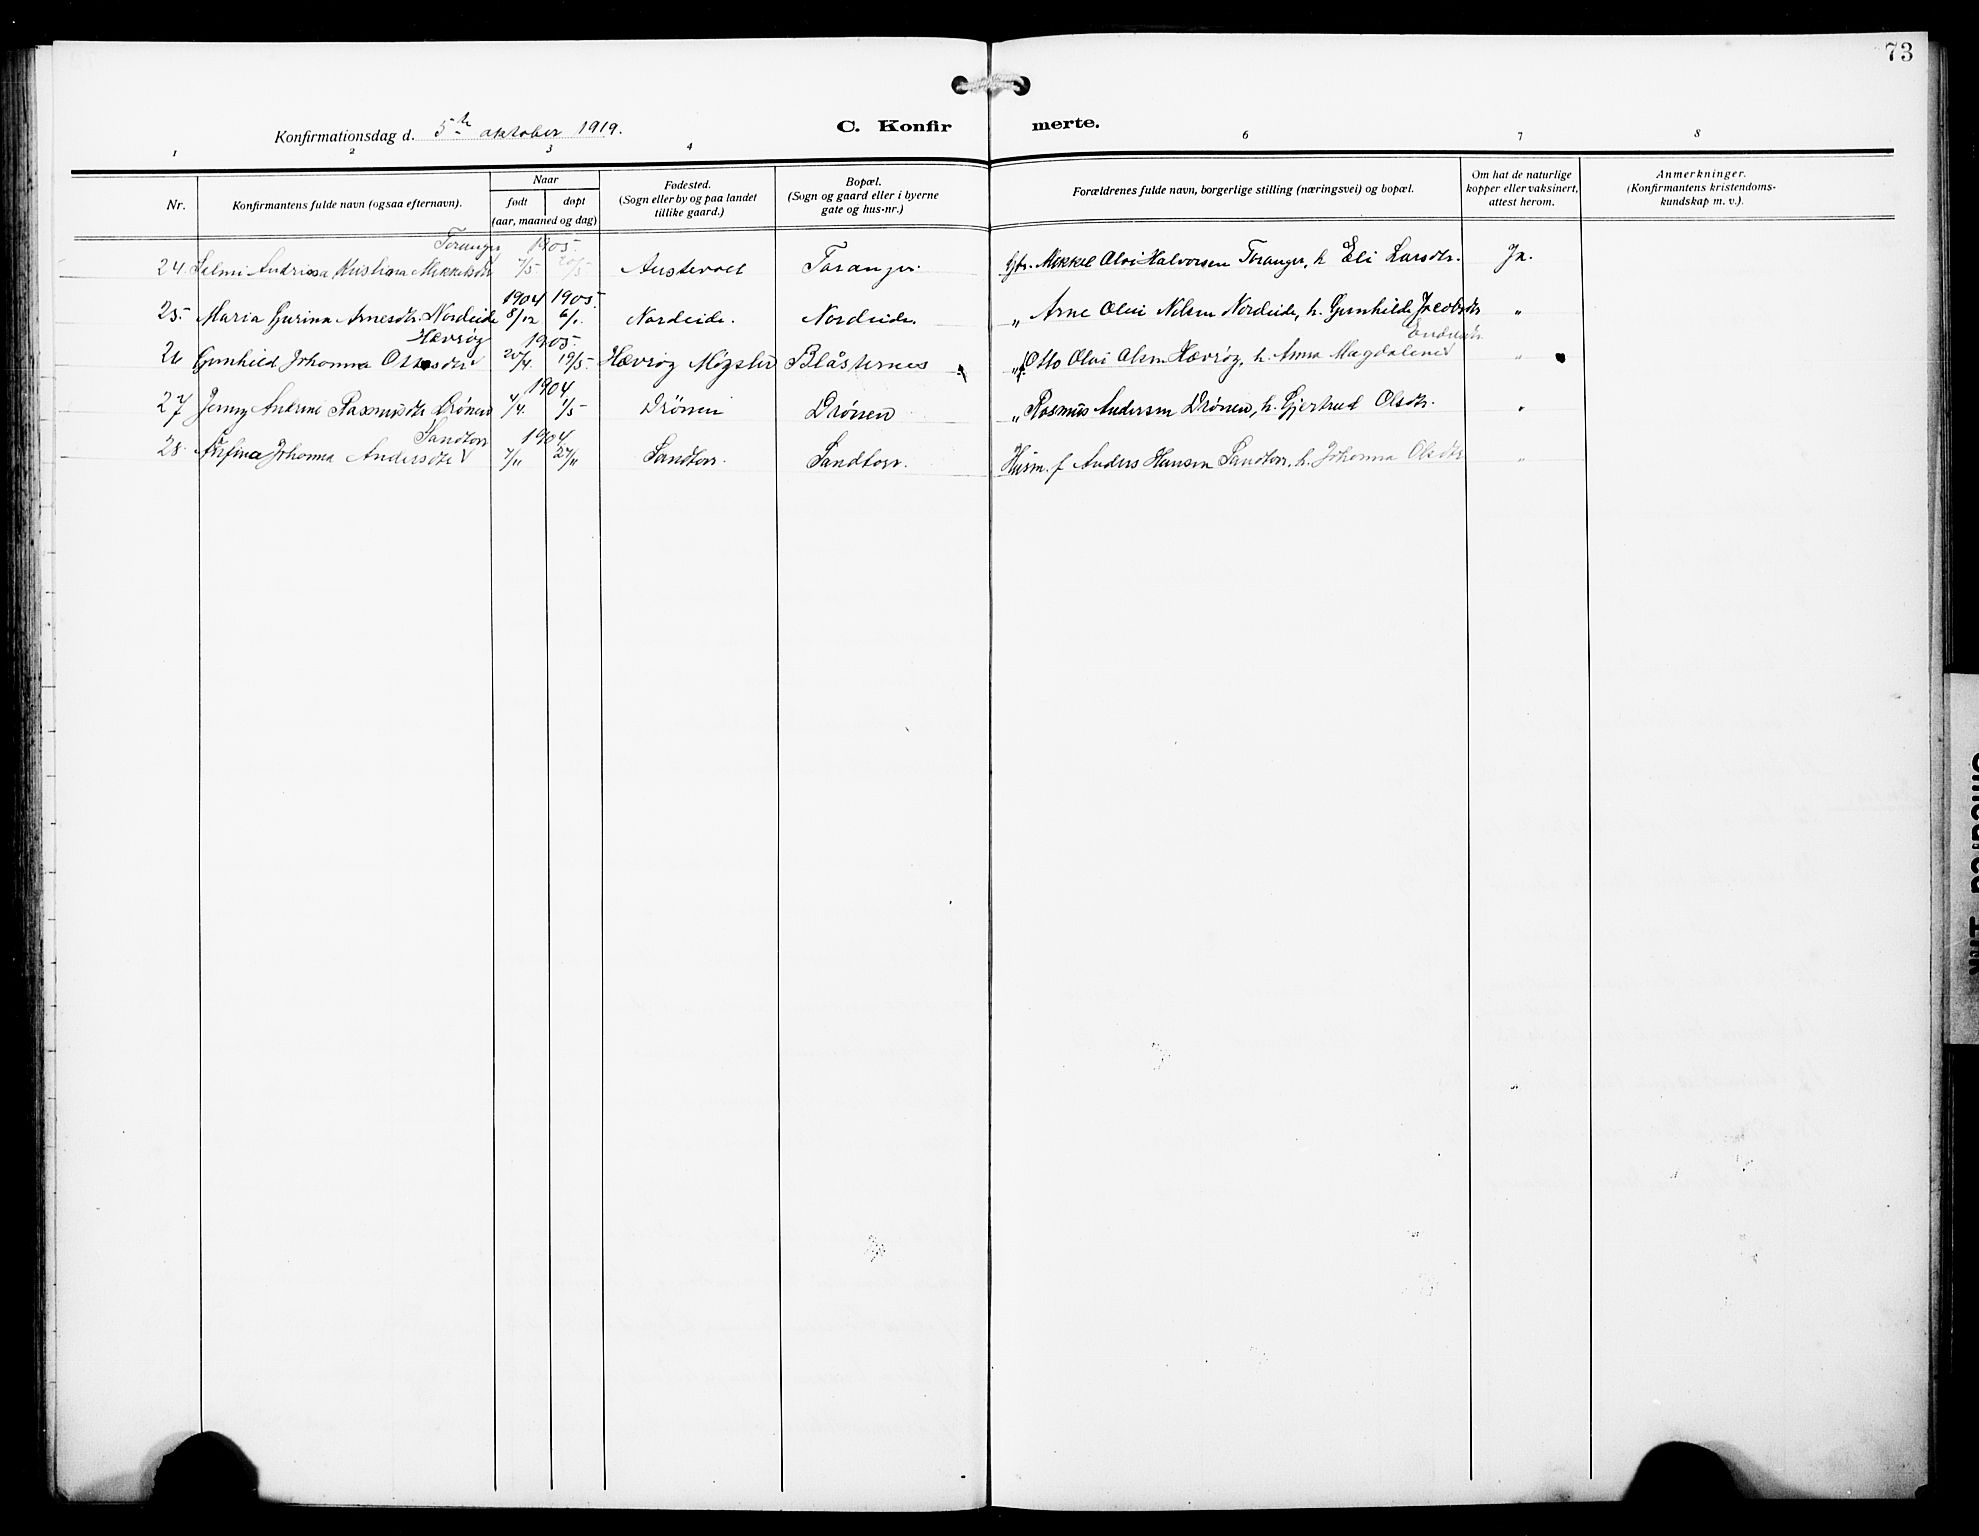 73
Konfirmationsdag d. 5te oktober 1919.
C. Konfirmerte.
1 2 3 4 6 7 8
Nr. Konfirmantens fulde navn (ogsaa efternavn). Naar født døpt (aar, maaned og dag) Fødested. (Sogn eller by og paa landet tillike gaard.) Bopæl. (Sogn og gaard eller i byerne gate og hus-nr.) Forældrenes fulde navn, borgerlige stilling (næringsvei) og bopæl. Om hat de naturlige kopper eller vaksinert, attest herom. Anmerkninger. (Konfirmantens kristendoms-kundskap m. v.).
Toranger 1905.
24. Selmi Andrissa Kristiana Mikkelsdtr 7/5 20/5 Austevoll Toranger. Gbr. Mikkel Olai Halvorsen Toranger, h. Eli Larsdtr. Ja.
1904 1905.
25. Maria Gurina Arnesdtr. Nordeide 8/12 6/1 Nordeide. Nordeide. " Arne Olai Nilsen Nordeide, h. Gunhilde Jacobsdtr "
Hævrøy 1905. Endresdtr
26 Gunhild Johanna Ottosdtr 20/4 19/5 Hævrøy Møgster Blåsternes " Otto Olai Olsen Hævrøy, h. Anna Magdalene "
1904
27 Jenny Andrine Rasmusdtr Drönen 4/4. 1/5 Drönen Drönen " Rasmus Andersen Drönen, h. Gjertrud Olsdtr. "
Sandtorv 1904
28. Arfina Johanna Andersdtr 7/11 27/11 Sandtorv. Sandtorv. Husm. f Anders Hansen Sandtorv, h. Johanna Olsdtr "